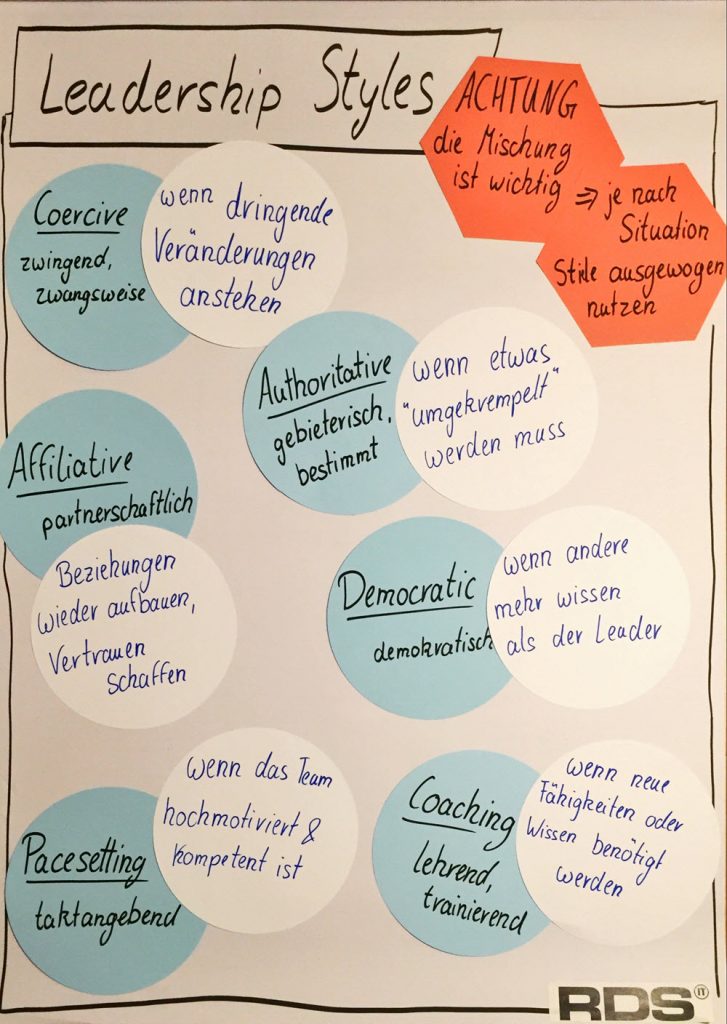 Leadership Styles
ACHTUNG
die Mischung
ist wichtig
⇒ je nach
Situation
Stile ausgewogen
nutzen
Coercive
zwingend,
zwangsweise
wenn dringende
Veränderungen
anstehen
Authoritative
gebieterisch,
bestimmt
wenn etwas
"umgekrempelt"
werden muss
Affiliative
partnerschaftlich
Beziehungen
wieder aufbauen,
Vertrauen
schaffen
Democratic
demokratisch
wenn andere
mehr wissen
als der Leader
Pacesetting
taktangebend
wenn das Team
hochmotiviert &
kompetent ist
Coaching
lehrend,
trainierend
wenn neue
Fähigkeiten oder
Wissen benötigt
werden
RDS IT